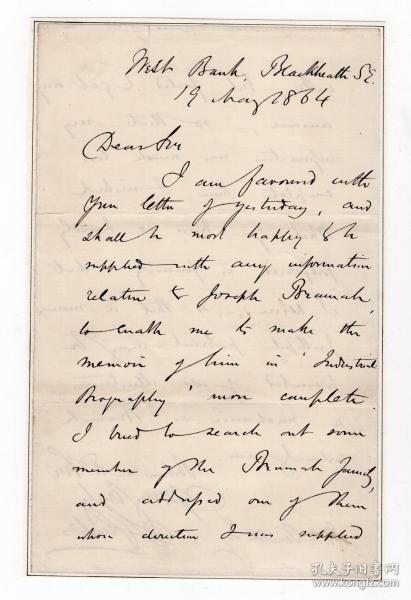 West Bank, Blackheath S.E.
19 May 1864
Dear Sir
I am favoured with
your letter of yesterday, and
shall be most happy to be
supplied with any information
relative to Joseph Bramah,
to enable me to make the
memoir of him in 'Industrial
Biography' more complete.
I tried to search out some
member of the Bramah family,
and addressed one of them
whose direction I was supplied
孔夫子旧书网